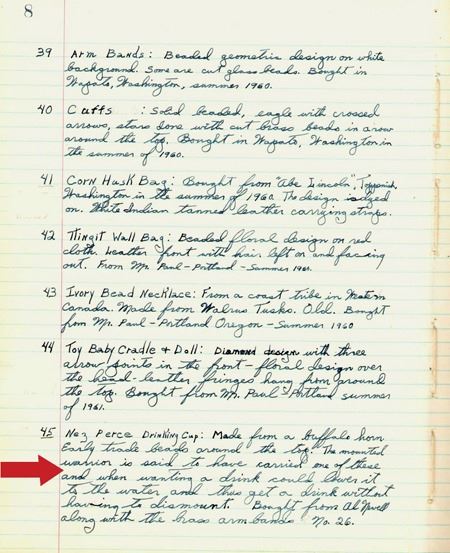 8
39 Arm Bands: Beaded geometric design on white
background. Some are cut glass beads. Bought in
Wapato, Washington, summer 1960.
40 Cuffs : Solid beaded, eagle with crossed
arrows, stars done with cut brass beads in a row
around the top. Bought in Wapato, Washington in
the summer of 1960.
41 Corn Husk Bag: Bought from "Abe Lincoln", Toppenish,
Washington in the summer of 1960. The design is dyed
on. White Indian tanned leather carrying strings.
42 Tlingit Wall Bag: Beaded floral design on red
cloth. Leather front with hair left on and facing
out. From Mr. Paul - Portland - Summer 1961.
43 Ivory Bead Necklace: From a coast tribe in Western
Canada. Made from Walrus Tusks. Old. Bought
from Mr. Paul - Portland Oregon - Summer 1960
44 Toy Baby Cradle + Doll: Diamond design with three
arrow points in the front - floral design over
the head - leather fringes hang from around
the top. Bought from Mr. Paul - Portland summer
of 1961.
45 Nez Perce Drinking Cup: Made from a buffalo horn
Early trade beads around the top. The mounted
warrior is said to have carried one of these
and when wanting a drink could lower it
to the water and thus get a drink without
having to dismount. Bought from Al Nuvell
along with the brass arm bands No. 26.